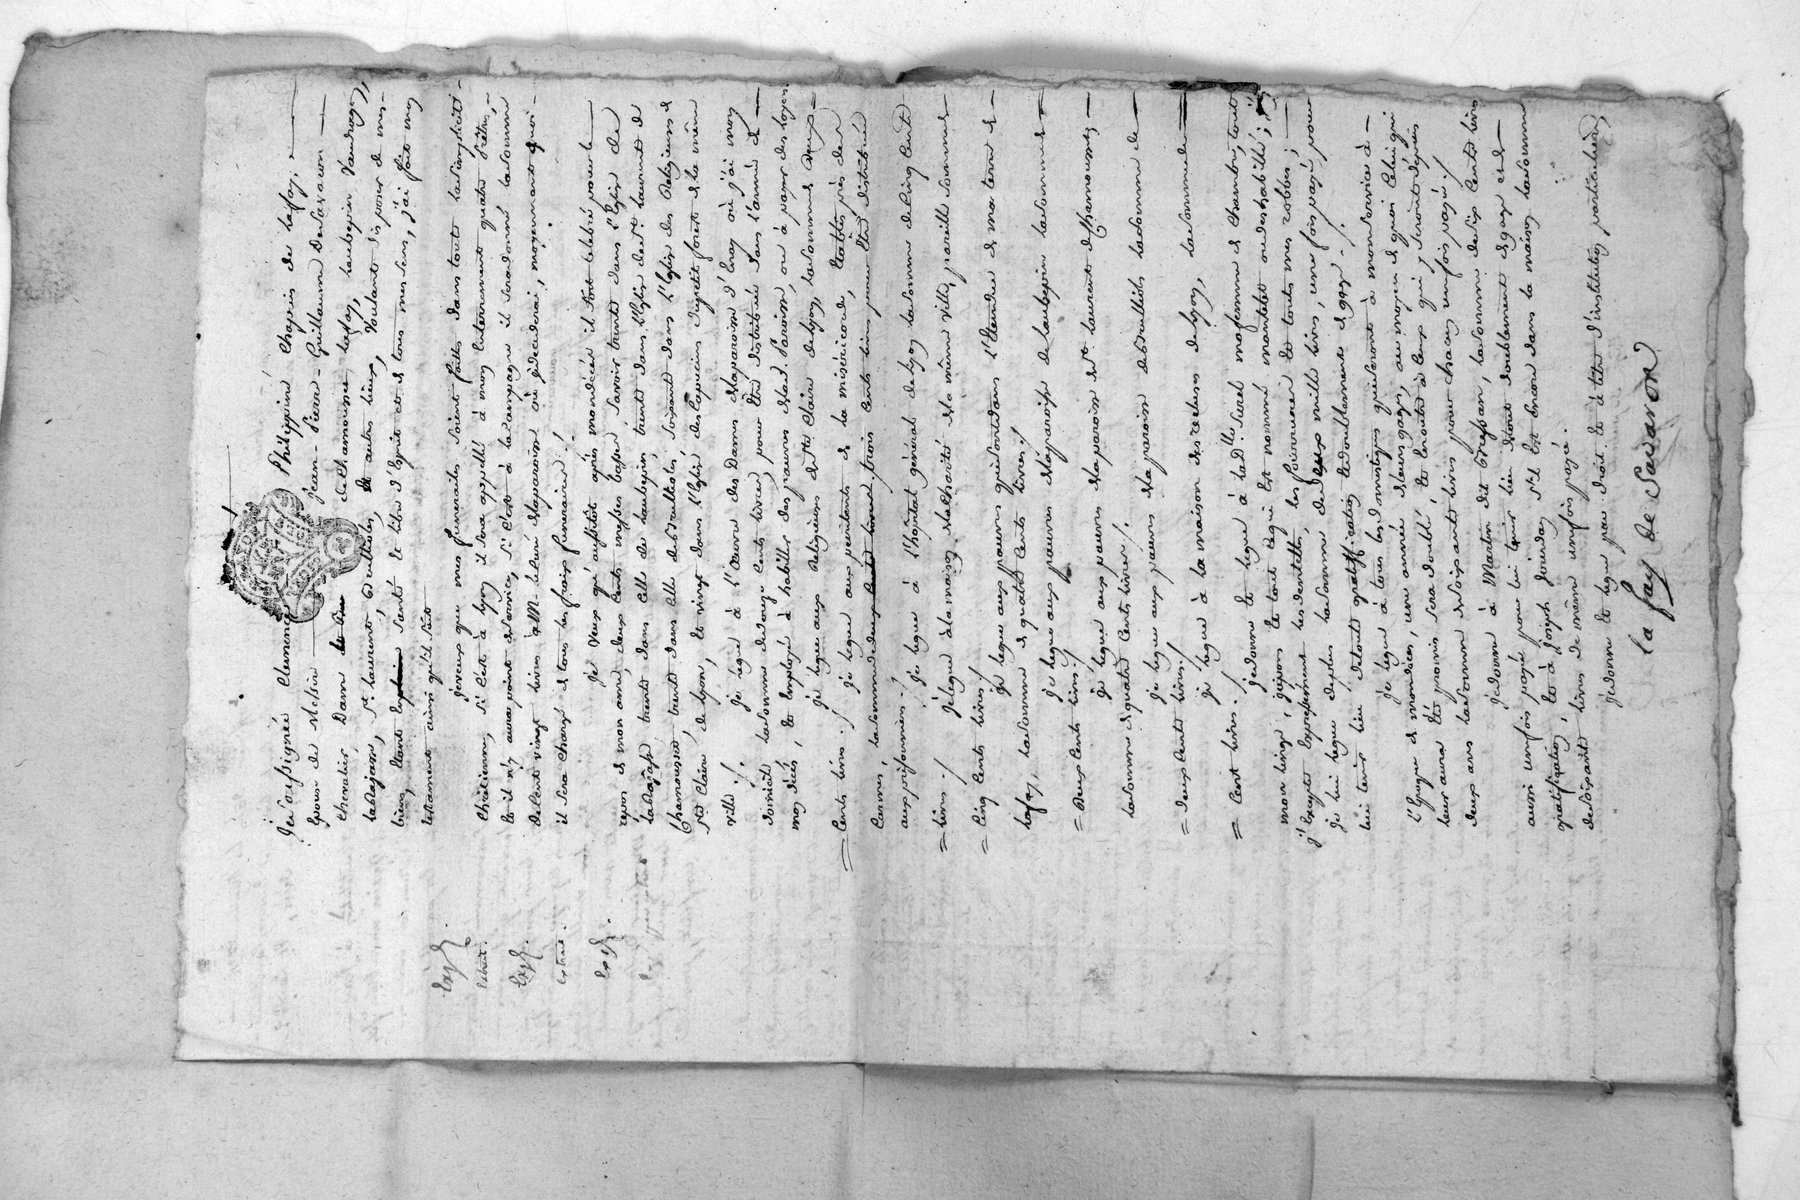 Je soussignée Clemence Philippine Chapuis de lafay,
Epouse de Messire jean-Pierre-Guillaume De Savaron
Chevalier Baron de Chamousset, lafay, laubepin
labajasse, St. laurent, & autres lieux, Voulant disposer de mes
biens, Etant Santé et libre d'Esprit et de tous mes sens, j'ai fait mon
testament ainsi qu'il suit
je veux que mes funerailles soient faittes dans toute la simplicité
chrétienne, si c'est à lyon il sera appellé à mon Enterrement quatre prêtres,
et il n'y aura point de service, si c'est à la campagne il sera donné la somme
de cent vingt livres à Mr. le Curé de la paroisse où je décederai, moyennant quoi
il sera chargé de tous les frais funeraires ./.
je veux qu'aussitôt après mon décès il soit celebré pour le
repos de mon ame deux cents messes basses savoir trente dans l'Eglise de
labajasse, trente dans celle de laubepin, trente dans l'Eglise de St. laurent de
Chamousset, trente dans celle des halles, soixante dans l'Eglise des Religieuses de
Ste. Claire de lyon, et vingt dans l'Eglise des Capucins du petit forest de la même
ville ./.
je legue à l'Œuvre des Dames de la paroisse d'Enay où j'ai mon
domicile la somme de douze cents livres, pour être distribué dans l'année de
mon décès, et employé à habiller des pauvres de lad. Paroisse, ou à payer des loyers
je legue aux Religieuses de Ste. Claire de lyon, la somme de deux
= Cents livres ./. je legue aux penitents de la miséricorde, Etablis près des
Carmes, la somme de trois cents livres pour être distribuée
aux prisonniers ./.
je legue à l'hôpital général de lyon la somme de Cinq Cent
= livres ./. je legue à la maison de la Charité de la même ville pareille somme de
= Cinq Cents livres ./.
je legue aux pauvres qui sont dans l'Etendue de ma terre de
lafay, la somme de quatre cents livres ./.
je legue aux pauvres de la paroisse de laubepin la somme de
= Deux Cents livres ./
je legue aux pauvres de la paroisse de St. laurent de Chamousset
la somme de quatre Cents livres ./.
je legue aux pauvres de la paroisse des halles la somme de
= deux Cents livres ./
je legue à la maison des recluses de lyon, la somme de
= Cent livres ./
je donne et legue à lad. lle. Sorel ma femme de chambre, tout
mon linge, jupons et tout ce qui Est nommé mantelet ou deshabillé; j'
j'excepte Expressément les dentelles, les fourrures et toutes mes robbes;
je lui legue de plus la somme de deux mille livres, une fois payée pour
lui tenir lieu de toute gratification et doublement de gages ./.
je legue à tous les domestiques qui seront à mon service à
l'Epoque de mon décès, une année de leurs gages, au moyen de quoi celui qui
leur aura Eté promis sera doublé; et Ensuite à ceux qui y seront depuis
deux ans la somme de soixante livres pour chacun une fois payée ./
je donne à Martin dit bressan, la somme de six Cents livres
aussi une fois payée pour lui tenir lieu de tout doublement de gages et de
gratification; et à Joseph jourdan s'il Est Encore dans la maison la somme
de soixante livres de même une fois payée.
je donne et legue par droit et à titre d'institution particulière
la fay De Savaron
Expé.
Extrait.
Expé.
Extrait.
Expé.